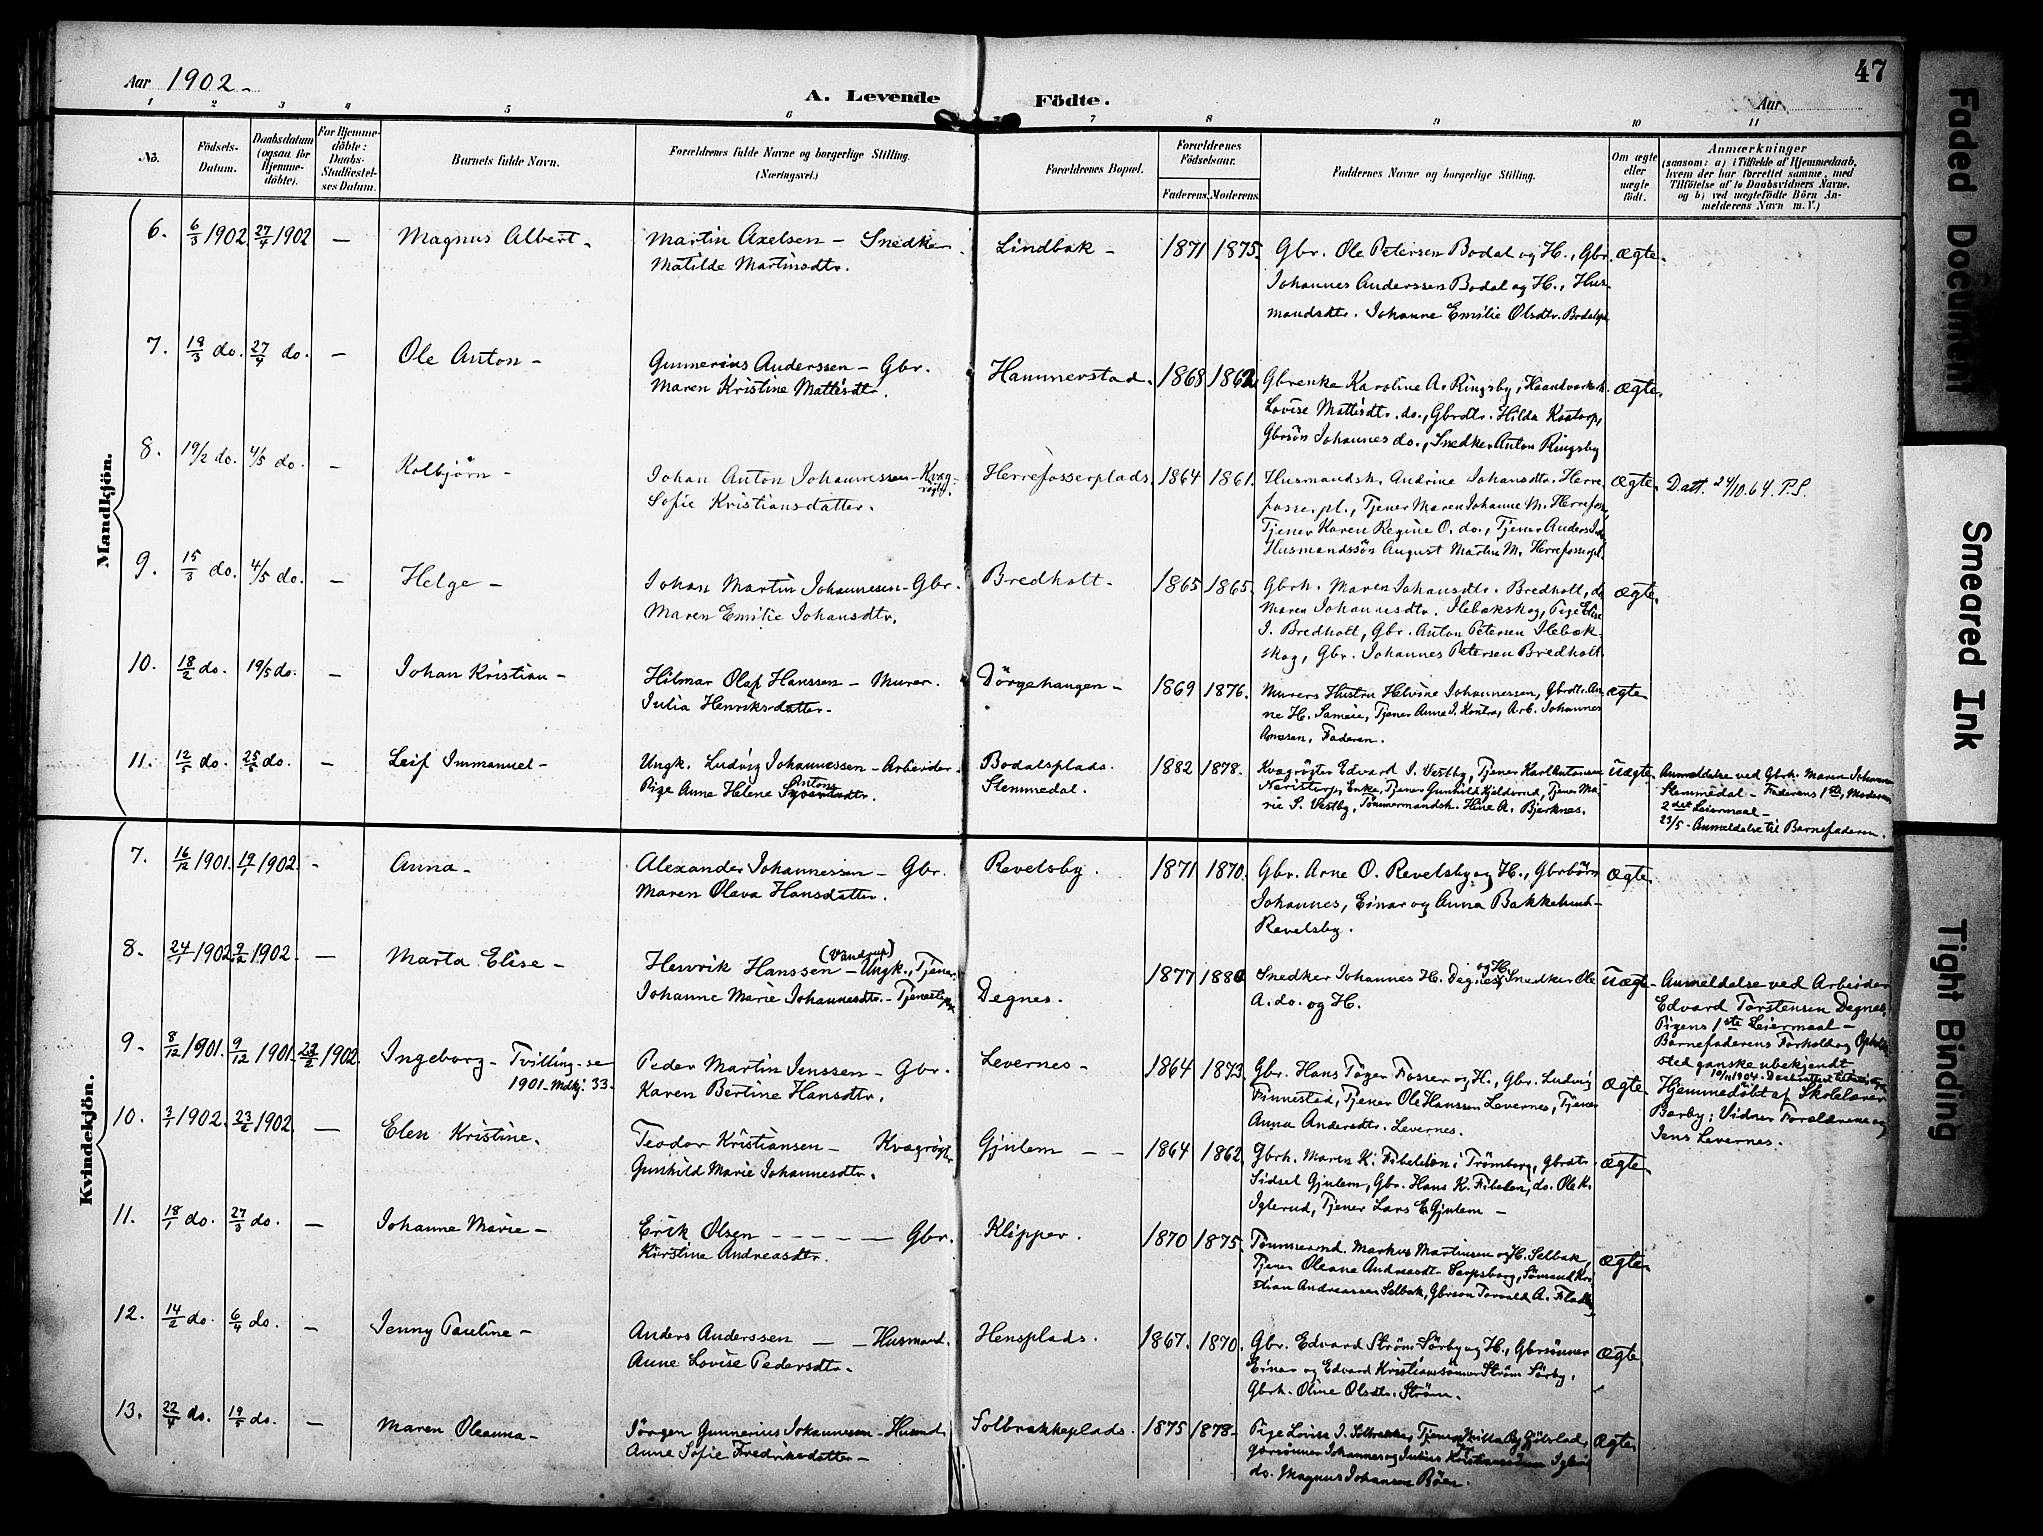 Aar 1902.
A. Levende Födte.
Aar
47
1 2 3 4 5 6 7 8 9 10 11
No.
Födsels-Datum.
Daabsdatum (ogsaa for Hjemme-döbte).
For Hjemme-döbte: Daabs-Stadfæstel-ses Datum.
Barnets fulde Navn.
Forældrenes fulde Navne og borgerlige Stilling. (Næringsvei.)
Forældrenes Bopæl.
Forældrenes Födselsaar.
Faderens. Moderens.
Faddernes Navne og borgerlige Stilling.
Om ægte eller uægte födt.
Anmærkninger
(saasom: a) i Tilfælde af Hjemmedaab, hvem der har forrettet samme, med Tilföielse af to Daabsvidners Navne, og b) ved uægtefödte Börn Anmelderens Navn m. V.)
Mandkjön.
6. 6/3 1902 27/4 1902 — Magnus Albert - Martin Axelsen - Snedker Lindbak - 1871 1875. Gbr. Ole Petersen Bodal og H., Gbr. ægte.
Matilde Martinsdtr. Johannes Anderssen Bodal og H., Hus-
mandsdtr. Johanne Emilie Olsdtr. Bodalspl
7. 19/3 do. 27/4 do. — Ole Anton - Gunnerius Anderssen - Gbr. Hammerstad. 1868 1862 Gbrenke Karoline A. Ringsby, Haandværkerh. ægte.
Maren Kristine Mattisdtr. Lovise Mattisdtr. do., Gbrdtr. Hilda Kastorp,
Gbrsön Johannes do., Snedker Anton Ringsby
8. 19/2 do. 4/5 do. — Kolbjörn - Johan Anton Johannessen - Kvæg-røgter. Herrefosserplads. 1864 1861. Husmandsh. Andrine Johansdtr. Herre- ægte. Datt. 24/10.64. P.S.
Sofie Kristiansdatter. fosserpl., Tjener Maren Johanne M. Herrefoss,
Tjener Karen Regine O. do., Tjener Anders
Husmandssön August Martin M. Herrefosserpl.
9. 15/3 do. 4/5 do. — Helge - Johan Martin Johannesen - Gbr. Bredholt - 1865 1865. Gbrh. Maren Johansdtr. Bredholt, do ægte.
Maren Emilie Johansdtr. Maren Johannesdtr. Ilebækskog, Pige Elise
J. Bredholt, Gbr. Anton Petersen Ilebæk-
skog, Gbr. Johannes Petersen Bredholt.
10. 18/2 do. 19/5 do. — Johan Kristian - Hilmar Olaf Hanssen - Murer. Dörgehaugen - 1869 1876. Murers Hustru Helvine Johannessen, Gbrdtr. An- ægte
Julia Henriksdatter. ne H. Sameie, Tjener Anna J. Kontra, Arb. Johannes
Arnesen, Faderen.
11. 12/5 do. 25/5 do. — Leif Immanuel - Ungk. Ludvig Johannessen - Arbeider. Bodalsplads. 1882 1878. Kvægrögter Edvard I. Vestby, Tjener Karl Antonsen uægte Anmeldelse ved Gbrh. Maren
Pige Anna Helene Antonsdtr. Stemmedal. Næristorp, Enke, Tjener Gunhild Kjeldsrud, Tjener Ma- Stemmedal - Faderens 1ste, Moderens
rie S. Vestby, Tömmermandsh. Hine A. Bjerknes. 2det Leiermaal -
23/5 - Anmeldelse til Barnefaderen.
Kvindekjön.
7. 16/12 1901. 19/1 1902. - Anna - Alexander Johannessen - Gbr. Revelsby. 1871 1870. Gbr. Arne O. Revelsby og H., Gbrbörn ægte
Maren Olava Hansdatter. Johannes, Einar og Anna Bakkehust-
Revelsby.
8. 24/1 1902 9/2 1902. — Marta Elise - Henrik Hanssen - Ungk., Tjener. 1877 1880 Snedker Johannes H. Degnes og H., Snedker Ole uægte - Anmeldelse ved Arbeider
Johanne Marie Johannesdtr. - Tjenestepige Degnes. A. do. og H. Edvard Torstensen Degnes,
Pigens 1ste Leiermaal -
Barnefaderens Forhold og Opholds-
sted ganske ubekjendt -
9. 8/12 1901. 9/12 1901. 23/2 1902. Ingeborg - Tvilling - se Peder Martin Jenssen - Gbr. Levernes - 1864 1873. Gbr. Hans Töger Fosser og H., Gbr. Ludvig ægte
1901 - Mdkj. 33. Karen Bertine Hansdtr. Finnestad, Tjener Ole Hanssen Levernes, Tjener Hjemmedöbt af Skolelærer
Anna Andersdtr. Levernes. Barby; Vidner Forældrene og
Jens Levernes.
10. 3/1 1902. 23/2 1902. — Elen Kristine. Teodor Kristiansen - Kvægrögter Gjulem - - 1864 1862. Gbrh. Maren K. Fibelston i Trömborg, Gbrdtr. ægte
Gunhild Marie Johannesdtr. Sidsel Gjulem, Gbr. Hans K. Fibelen, do. Ole K.
Iglerud, Tjener Lars E. Gjulem -
11. 18/1 do. 27/3 do. — Johanne Marie - Erik Olsen - - - - Gbr. Klipper. 1870 1875. Tömmermd. Markus Martinsen og H. Selbak, ægte
Kirstine Andreasdtr. Tjener Oleane Andreasdtr. Sarpsborg, Sömand Kri-
stian Andreassen Selbak, Gbrsön Torvald A.
12. 14/2 do. 6/4 do. — Jenny Pauline - Anders Anderssen - Husmand. Hensplads. 1867. 1870. Gbr. Edvard Ström Sörby og H., Gbrsönner ægte
Anne Lovise Pedersdtr. Einar og Edvard Kristiansönner Ström Sörby,
Gbrh. Oline Olsdtr. Ström.
13. 22/4 do. 19/5 do. — Maren Oleanna - Jörgen Gunnerius Johannesen - Husmd. Solbrækkeplads. 1875 1878. Pige Lovise J. Solbrække, Tjener Milla ægte
Anne Sofie Fredriksdatter - Gbrsönner Johannes og Julius
do. Magnus Johansen Böen.
Faded Document
Smeared Ink
Tight Binding